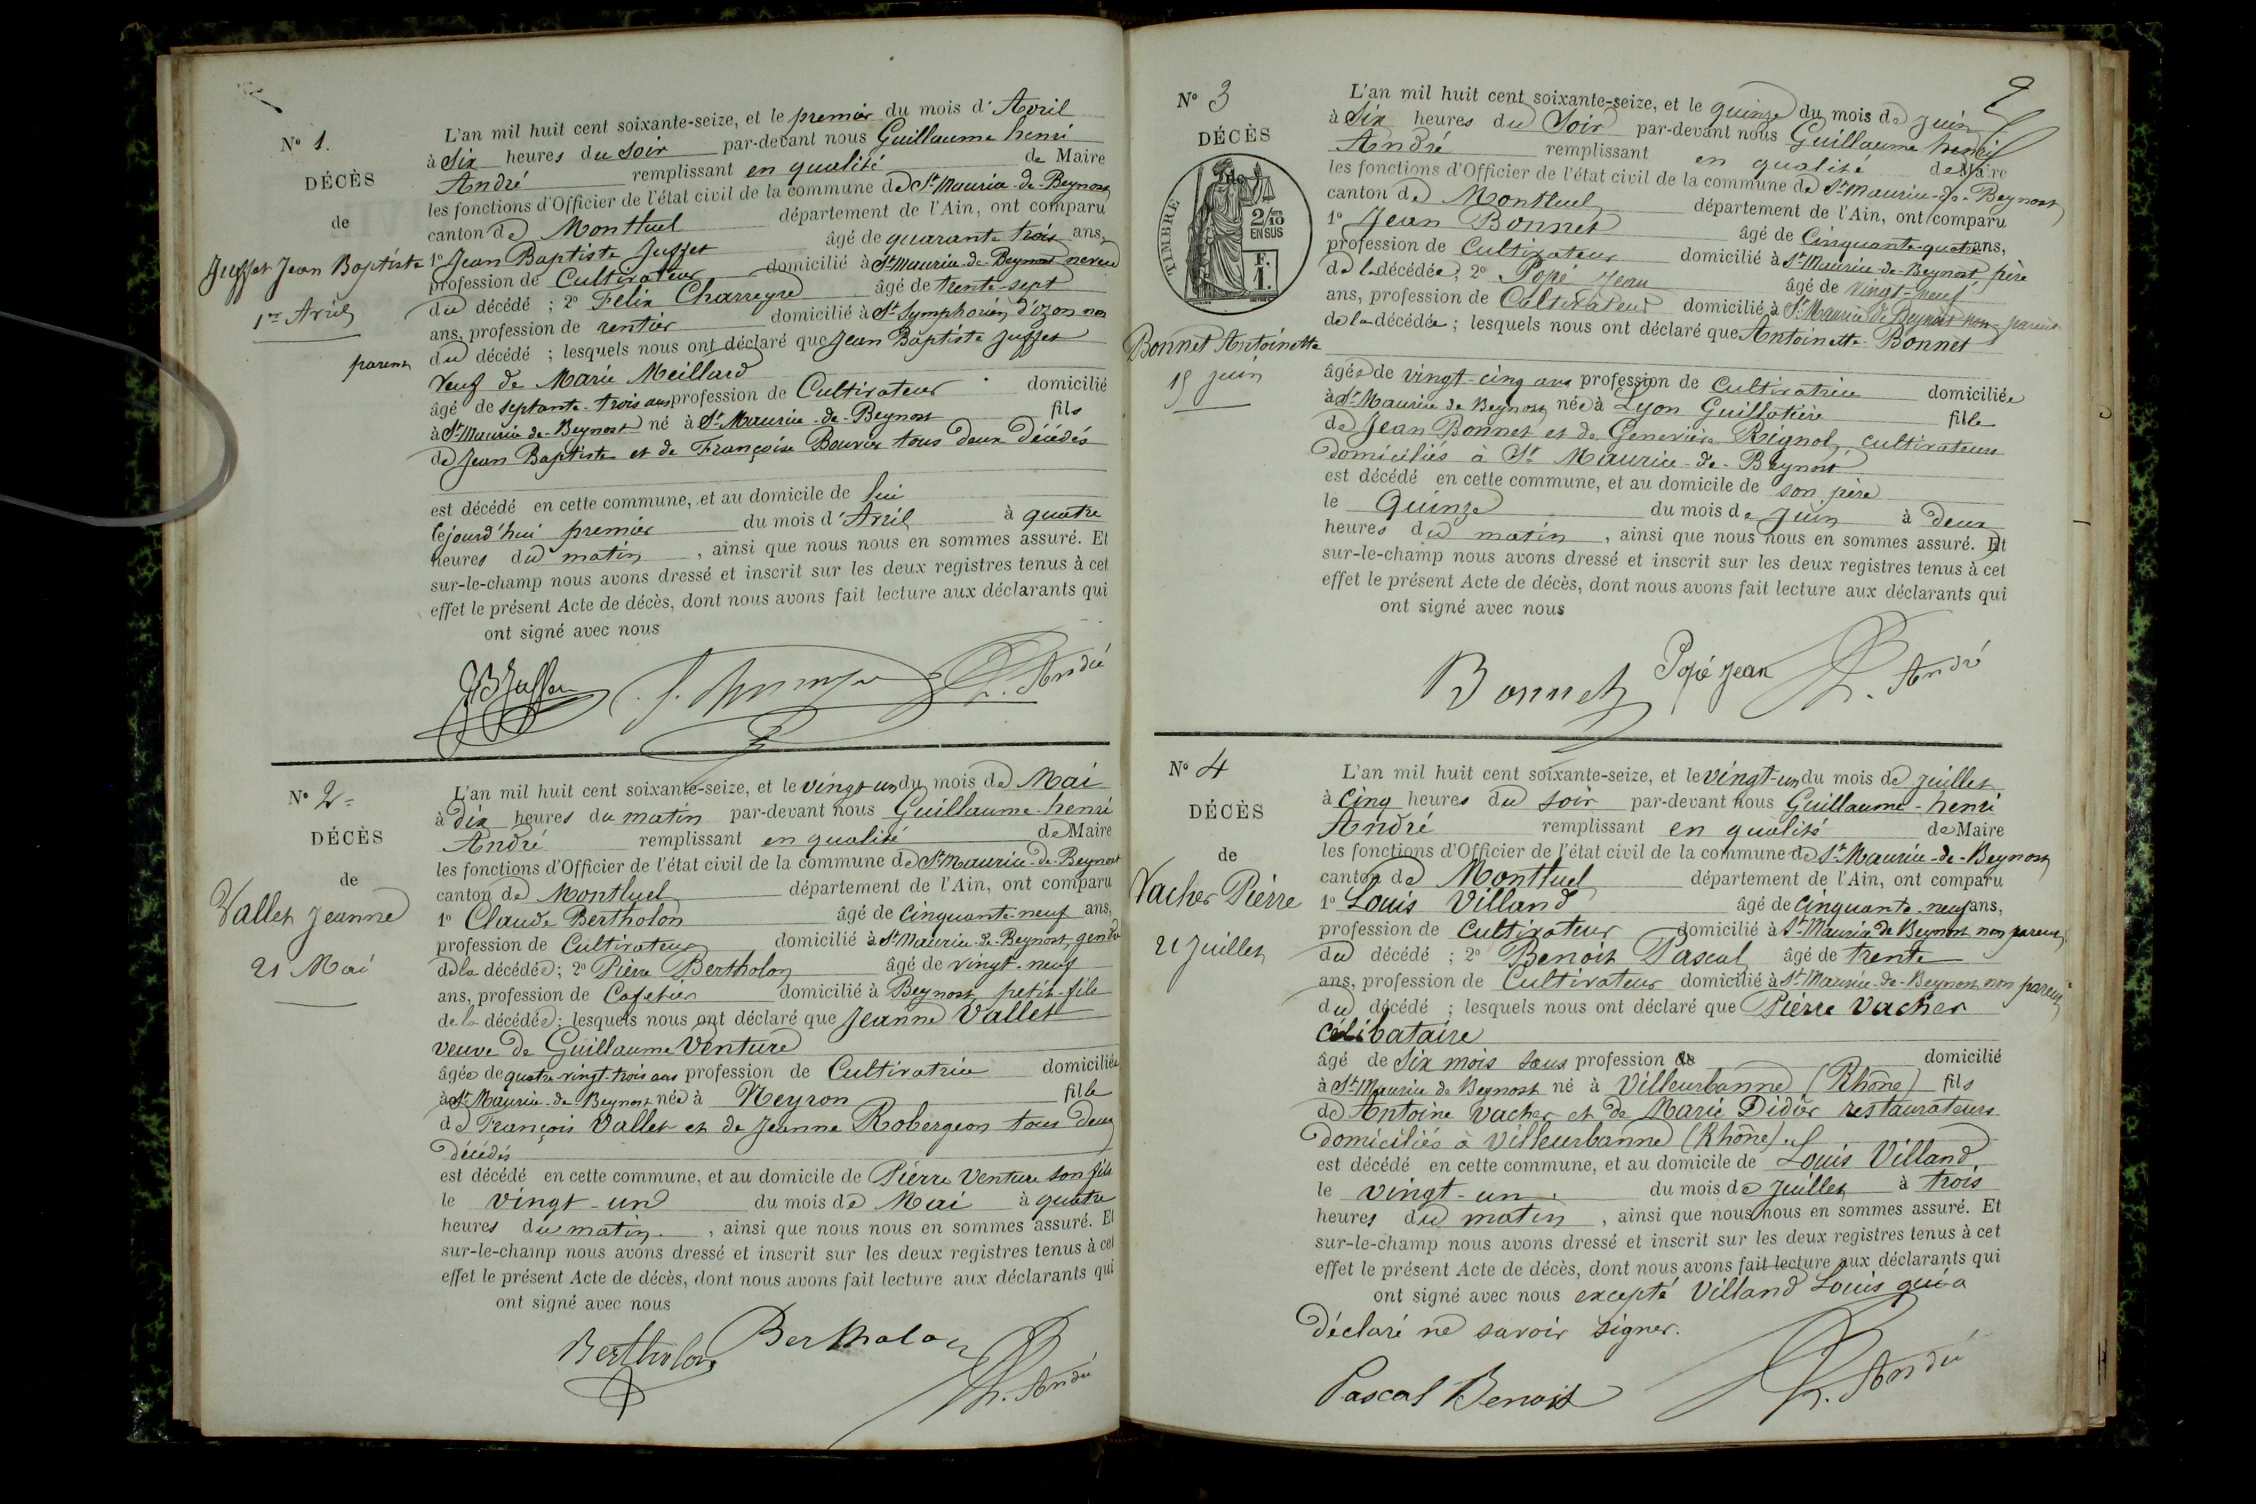 N° 1.
DÉCÈS
de
Juffet Jean Baptiste
1er Avril
L'an mil huit cent soixante-seize, et le premier du mois d'Avril
à Six heures du Soir par-devant nous Guillaume henri
André remplissant en qualité de Maire
les fonctions d'Officier de l'état civil de la commune de St Maurice-de-Beynost
canton de Montluel département de l'Ain, ont comparu
1° Jean Baptiste Juffet âgé de quarante trois ans,
profession de Cultivateur domicilié à St Maurice-de-Beynost neveu
du décédé ; 2° Felix Charreyre âgé de trente-sept
ans, profession de rentier domicilié à St Symphorien d'ozon non
parent du décédé ; lesquels nous ont déclaré que Jean Baptiste Juffet
Veuf de Marie Meillard
âgé de septante-trois ans profession de Cultivateur domicilié
à St Maurice de-Beynost né à St Maurice-de-Beynost fils
de Jean Baptiste et de Françoise Bouvier tous deux décédés
est décédé en cette commune, et au domicile de lui
le jourd'hui premier du mois d'Avril à quatre
heures du matin, ainsi que nous nous en sommes assuré. Et
sur-le-champ nous avons dressé et inscrit sur les deux registres tenus à cet
effet le présent Acte de décès, dont nous avons fait lecture aux déclarants qui
ont signé avec nous
JB Juffet h. André
N° 2
DÉCÈS
de
Vallet Jeanne
21 Mai
L'an mil huit cent soixante-seize, et le vingt-un du mois de Mai
à dix heures du matin par-devant nous Guillaume-henri
André remplissant en qualité de Maire
les fonctions d'Officier de l'état civil de la commune de St Maurice-de-Beynost
canton de Montluel département de l'Ain, ont comparu
1° Claude Bertholon âgé de Cinquante-neuf ans,
profession de Cultivateur domicilié à St Maurice-de-Beynost gendre
de la décédée ; 2° Pierre Bertholon âgé de vingt-neuf
ans, profession de Cafetier domicilié à Beynost petit-fils
de la décédée ; lesquels nous ont déclaré que Jeanne Vallet
veuve de Guillaume Venture
âgée de quatre-vingt-trois ans profession de Cultivatrice domiciliée
à St Maurice-de-Beynost née à Neyron fille
de François Vallet et de Jeanne Robergeon tous deux
décédés
est décédé en cette commune, et au domicile de Pierre Venture son fils
le vingt-un du mois de Mai à quatre
heures du matin, ainsi que nous nous en sommes assuré. Et
sur-le-champ nous avons dressé et inscrit sur les deux registres tenus à cet
effet le présent Acte de décès, dont nous avons fait lecture aux déclarants qui
ont signé avec nous
Bertholon Bertholon h. André
9
N° 3
DÉCÈS
TIMBRE
2/10
EN SUS
F.
1.
Bonnet Antoinette
15 juin
L'an mil huit cent soixante-seize, et le quinze du mois de juin
à Six heures du Soir par-devant nous Guillaume henri
André remplissant en qualité de Maire
les fonctions d'Officier de l'état civil de la commune de St Maurice-de-Beynost
canton de Montluel département de l'Ain, ont comparu
1° Jean Bonnet âgé de Cinquante-quatre ans,
profession de Cultivateur domicilié à St Maurice-de-Beynost père
de la décédée ; 2° Popé Jean âgé de vingt-neuf
ans, profession de Cultivateur domicilié à St Maurice de Beynost non-parent
de la décédée ; lesquels nous ont déclaré que Antoinette Bonnet
âgée de vingt-cinq ans profession de Cultivatrice domiciliée
à St Maurice de Beynost née à Lyon Guillotière fille
de Jean Bonnet et de Geneviève Rignol, cultivateurs
domiciliés à St Maurice-de-Beynost
est décédé en cette commune, et au domicile de son père
le Quinze du mois de Juin à deux
heures du matin, ainsi que nous nous en sommes assuré. Et
sur-le-champ nous avons dressé et inscrit sur les deux registres tenus à cet
effet le présent Acte de décès, dont nous avons fait lecture aux déclarants qui
ont signé avec nous
Bonnet Popé Jean h. André
N° 4
DÉCÈS
de
Vacher Pierre
21 Juillet
L'an mil huit cent soixante-seize, et le vingt-un du mois de juillet
à Cinq heures du soir par-devant nous Guillaume-henri
André remplissant en qualité de Maire
les fonctions d'Officier de l'état civil de la commune de St Maurice-de-Beynost
canton de Montluel département de l'Ain, ont comparu
1° Louis Villand âgé de Cinquante-neuf ans,
profession de Cultivateur domicilié à St Maurice de Beynost non parent
du décédé ; 2° Benoit Pascal âgé de trente
ans, profession de Cultivateur domicilié à St Maurice-de-Beynost non parent
du décédé ; lesquels nous ont déclaré que Pierre Vacher
Célibataire
âgé de Six mois sans profession de domicilié
à St Maurice de Beynost né à Villeurbanne (Rhône) fils
de Antoine Vacher et de Marie Didier restaurateurs
domiciliés à Villeurbanne (Rhône)
est décédé en cette commune, et au domicile de Louis Villand
le vingt-un du mois de Juillet à trois
heures du matin, ainsi que nous nous en sommes assuré. Et
sur-le-champ nous avons dressé et inscrit sur les deux registres tenus à cet
effet le présent Acte de décès, dont nous avons fait lecture aux déclarants qui
ont signé avec nous excepté Villand Louis qui a
déclaré ne savoir signer.
Pascal Benoit h. André